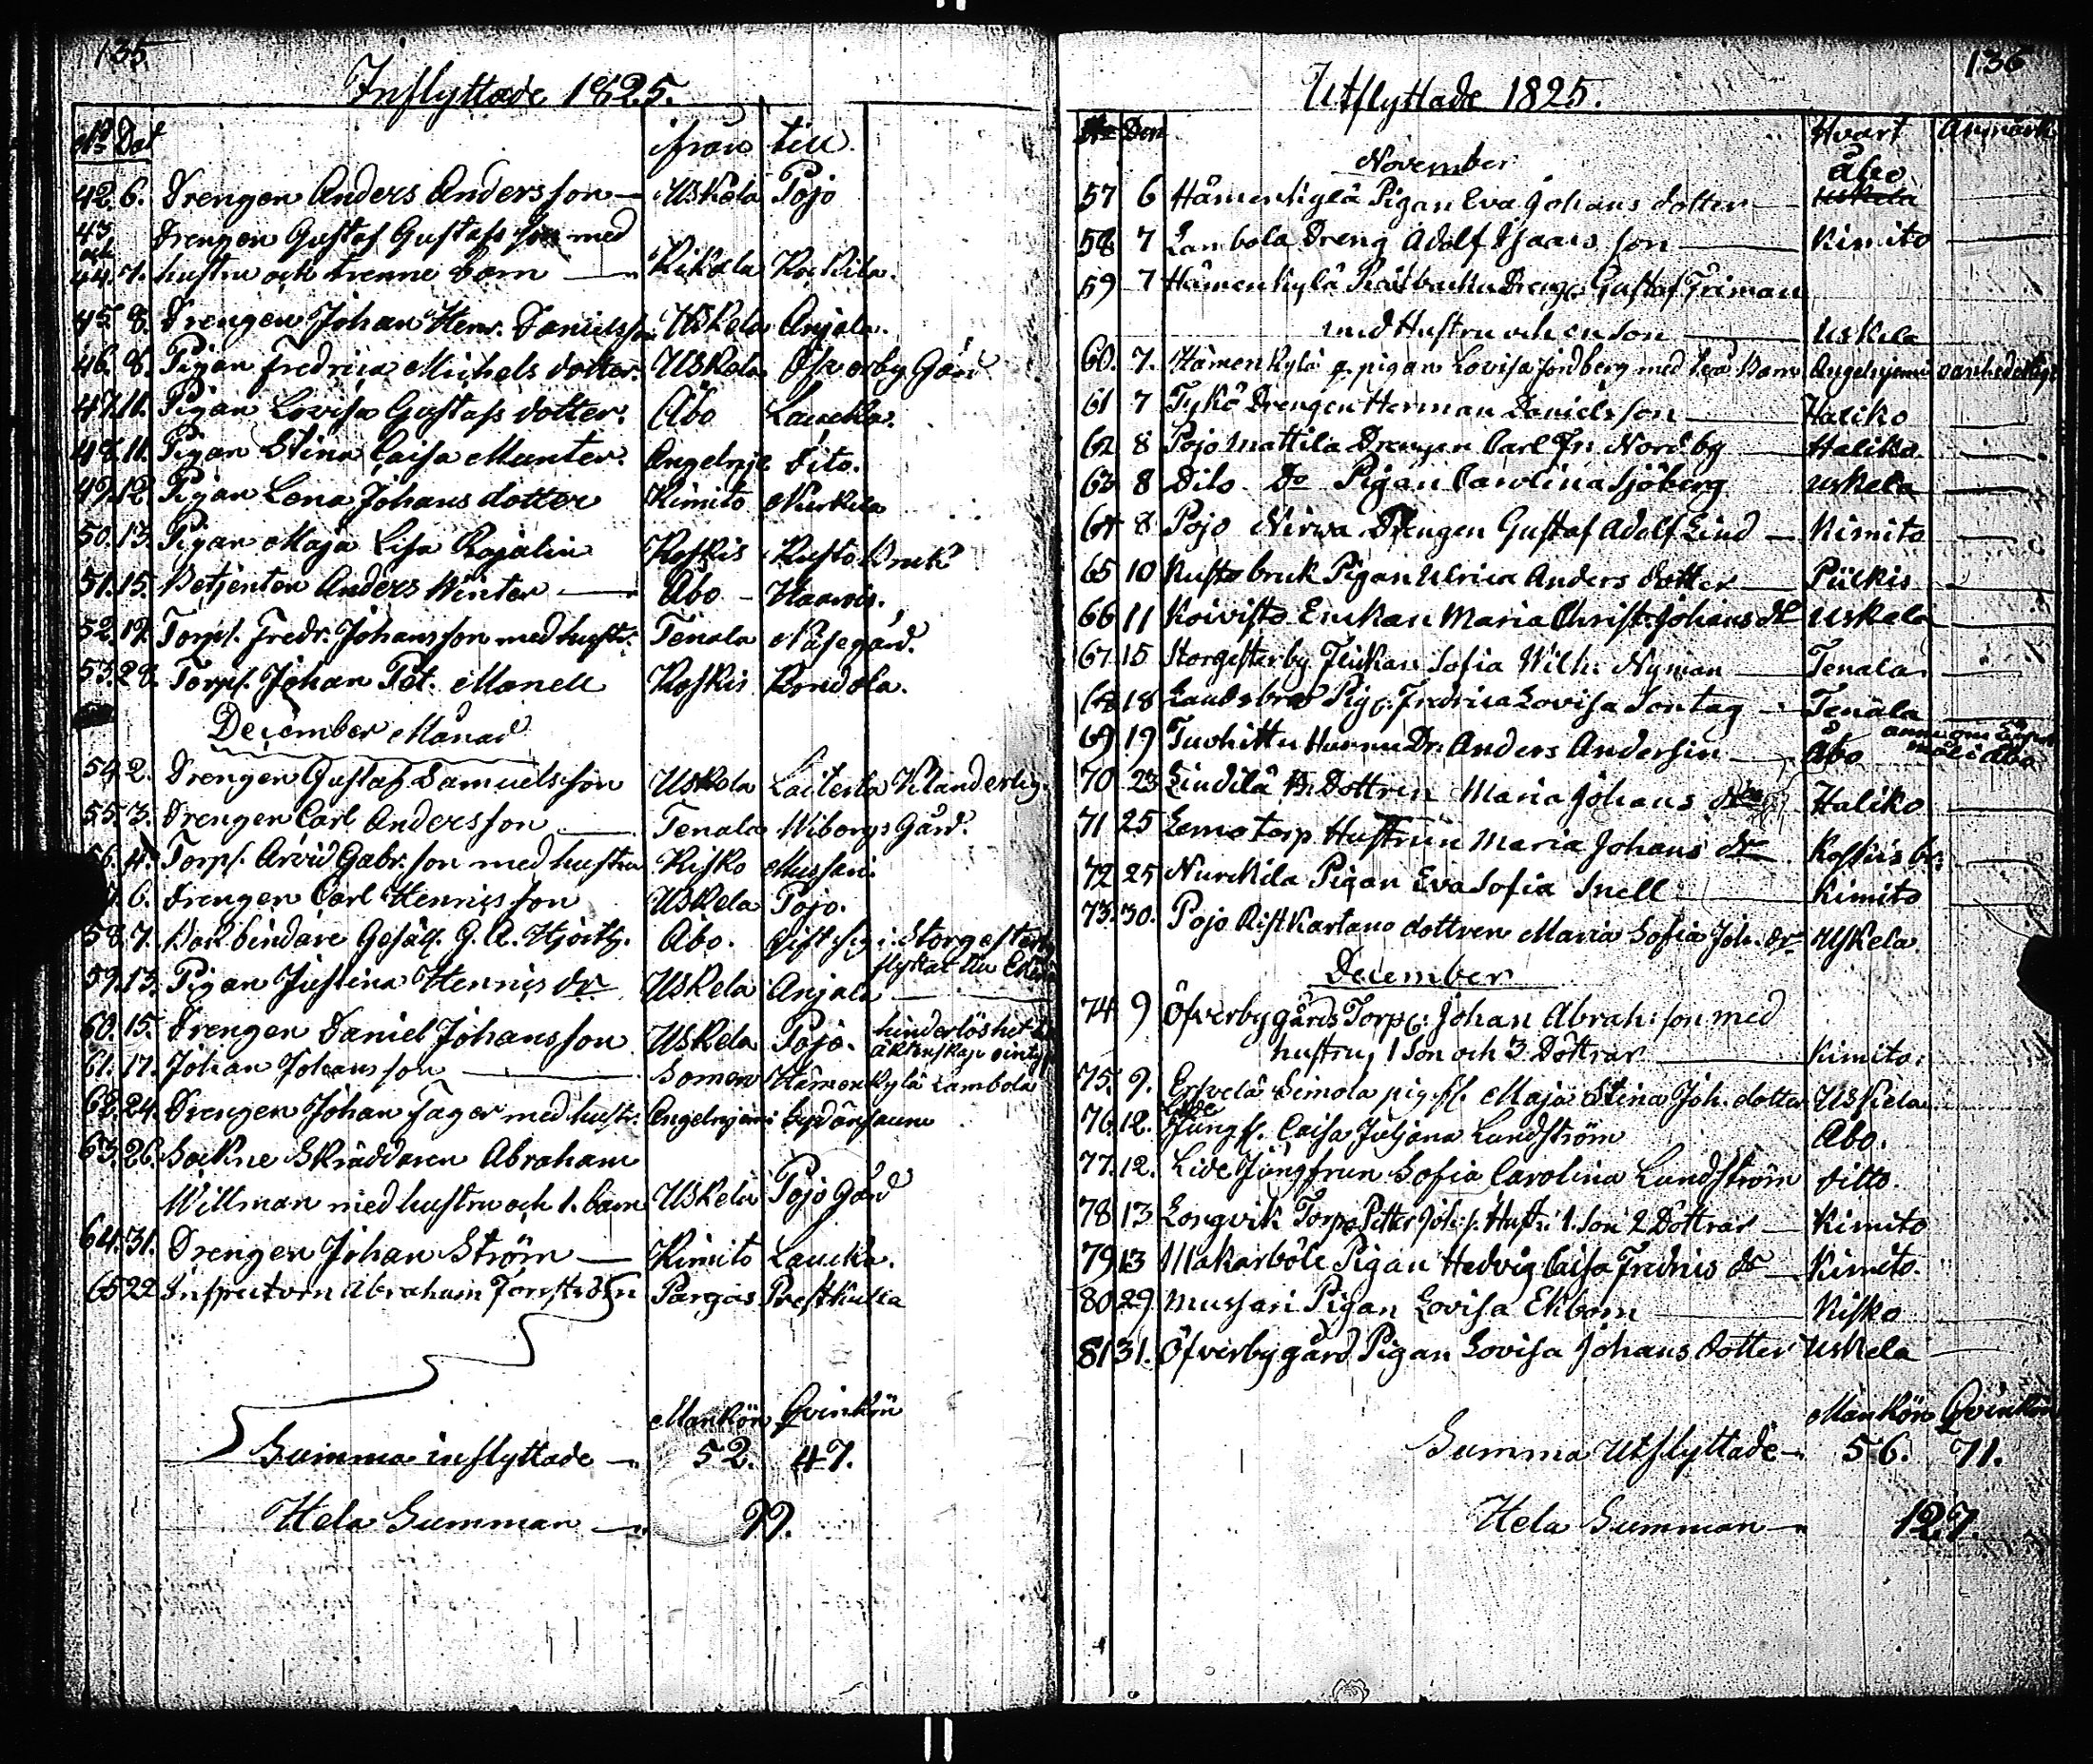 135.
Inflyttade 1825.
No Dat ifrån till
42. 6. Drengen Anders Andersson Uskela Pojo
43 Drengen Gustaf Gustafs son med
och
44. 7. hustru och trenne barn Kikala Kockila.
45. 8. Drengen Johan Henr. Danielsson Uskela Anjala.
46. 8. Pigan Fredrica Michels dotter. Uskela Öfverby Gård
47. 11. Pigan Lovisa Gustafs dotter. Åbo Lauckka.
48. 11. Pigan Stina Caisa Munter. Angelnje Dito.
49. 12. Pigan Lena Johans dotter Kimito Nurkila
50. 13. Pigan Maja Lisa Rojalin Koskis Kusto Bruk
51. 15. Betjenten Anders Winter Åbo Haarvis.
52. 19. Torps. Fredr. Johansson med hustr: Tenala Näsegård.
53. 28. Torps. Johan Pet. Monell Koskis Bondola.
December Månad
54 2. Drengen Gustaf Samuelsson Uskela Laiterla Klanderlig.
55. 3. Drengen Carl Andersson Tenala Wiborgs Gård.
56. 4. Torps. Arvid Gabr. son med hustru Kisko Mussari.
6. Drengen Carl Henricsson Uskela Pojo.
58. 7. Bokbindare Gesäll. G. A. Hjörtz. Åbo. Gift sig i Storgesterby
flyttat till
59. 13. Pigan Justina Henrics dr Uskela Anjala
60. 15. Drengen Daniel Johansson Uskela Pojo. hinderlöshet
äktenskap
61. 17. Johan Johansson Somero Hämenkylä Lambola
62. 24. Drengen Johan Fager med hustr: Angelnjemi
63. 26. Sockne Skräddaren Abraham
Willman med hustru och 1. barn Uskela Pojo Gård
64. 31. Drengen Johan Ström Kimito Laucka.
65 22 Inspectorn Abraham Forsström Pargas Prestkulla
Mankön Qvinkön
Summa inflyttade 52. 47.
Hela Summan 99.
136
Utflyttade 1825.
No Den Hvart Anmärk
November Åbo
57 6 Hämenkylä Pigan Eva Johans dotter Uskela
58 7 Lambola Dreng Adolf Isaacs son Kimito
59 7 Hämenkylä Dreng. Gustaf Friman
med Hustru och en son Uskela
60. 7. Hämenkylä pigan Lovisa Sondberg med två Barn Angelnjemi
61 7 Tykö Drengen Herman Danielsson Haliko
62 8 Pojo Mattila Drengen Carl Fr. Nordby Haliko
63 8 Dito Do Pigan Carolina Sjöberg Uskela
64 8 Pojo Nirva Drengen Gustaf Adolf Lind Kimito
65 10 Kusto bruk Pigan Ulrica Anders dotter Piikis
66 11 Koivisto Enkan Maria Christ. Johans dr Uskela
67 15 Storgesterby Flickan Sofia Wilh. Nyman Tenala
68 18 Landsbro Pig. Fredrica Lovisa Sontag Tenala
69 19 Tuohittu Hannu Dr. Anders Andersin Åbo
70 23 Lindilä B. Dottren Maria Johans dr Haliko
71 25 Lemo torp Hustrun Maria Johans dr Koskis br:
72 25 Nurckila Pigan Eva Sofia Snell Kimito
73. 30. Pojo Ristkartano dottren Maria Sofia Joh. dr Uskela.
December
74 9 Öfverbygårds Torp. Johan Abrah: son med
hustru, 1 Son och 3 Döttrar Kimito.
75. 9. Ersvelä Seimola pig. Maja Stina Joh. dotter Uskela
76. 12. Lide Jungf. Caisa Juljana Lundström Åbo.
77. 12. Lide Jungfrun Sofia Carolina Lundström ditto.
78 13 Longvik Torp. Petter Joh. s. Hustr. 1. Son 2 Döttrar Kimito
79 13 Makarböle Pigan Hedvig Caisa Fredrics dr Kimito.
80 29 Mussari Pigan Lovisa Ekbom Kisko
81 31. Öfverbygård Pigan Lovisa Johans dotter Uskela
Mankön Qvinkön
Summa Utflyttade 56. 71.
Hela Summan 127.